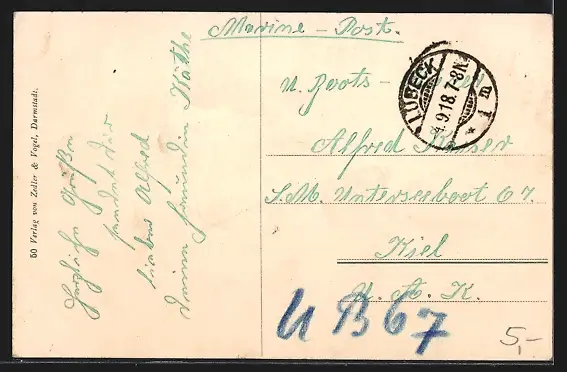 Marine - Post.
50 Verlag von Zedler & Vogel, Darmstadt.
Herzliche Grüße
sendet dir
lieber Alfred
deine Freundin Käthe
LÜBECK
1.9.18.7-8N.
* 1 m *
U. Boots-
Alfred Kaiser
S.M. Unterseeboot 67.
Kiel
U. A. K.
U B 67
5,-